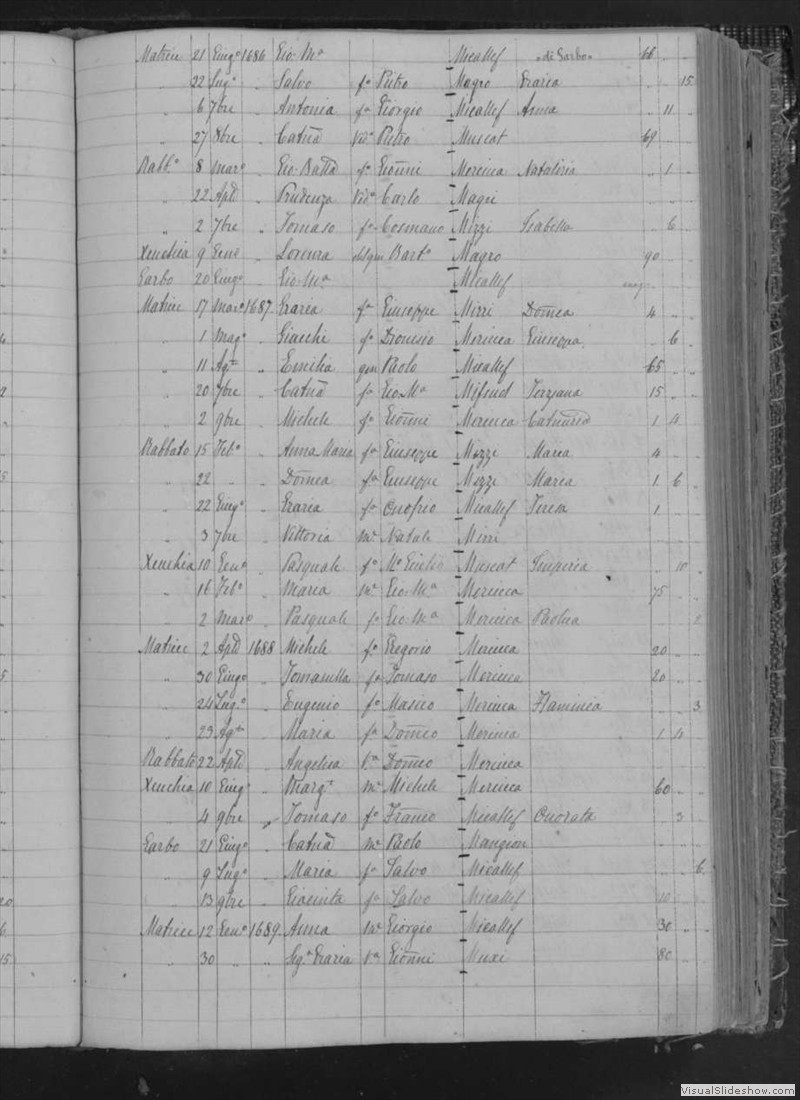 Matrice 21 Giug° 1686 Gio: Mª Micallef di Garbo 66 " "
" 22 Lug° " Salvo fº Pietro Magro Grazia " " 15
" 6 7bre " Antonia fª Giorgio Micallef Anna " 11 "
" 27 8bre " Catña Vidª Pietro Muscat 69 " "
Rabb.° 8 Mar° " Gio: Batta fº Gioñni Mercieca Natalizia " 1 "
" 22 Apl̃e " Prudenza Vidª Carlo Magri
" 2 7bre " Tomaso fº Cosmano Mizzi Isabella " 6 "
Xeuchia 9 Genº " Lorenza Bartº Magro 90 " "
Garbo 20 Giugº " Gio: Mª Micallef
Matrice 17 Marº 1687 Grazia fª Giuseppe Mizzi Doñica 4 " "
" 1 Magº " Giacchi fº Dionisio Mercieca Giuseppa " 6 "
" 11 Agtº " Emilia qm Paolo Micallef 65 " "
" 20 7bre " Catña fª Gio: Mª Mifsud 15 " "
" 2 9bre " Michele fº Gioñni Mercieca 1 4 "
Rabbato 15 Febº " Anna Maria fª Giuseppe Mizzi Maria 4 " "
" 22 " " Doñica fª Giuseppe Mizzi Maria 1 6 "
" 22 Giugº " Grazia fª Onofrio Micallef Teresa 1 " "
" 3 7bre " Vittoria mᵉ Natale Mizzi
Xeuchia 10 Genº " Pasquale fº Muscat Imperia " 10 "
" 16 Febº " Maria mᵉ Gio: Mª Mercieca 75 " "
" 2 Marº " Pasquale fº Gio: Mª Mercieca Paolica " " 2
Matrice 2 Apl̃e 1688 Michele fº Gregorio Mercieca 20 " "
" 30 Giugº " Tomasella fª Tomaso Mercieca 20 " "
" 24 Lugº " Eugenio fº Mercieca Flaminia " " 3
" 23 Agtº " Maria fª Doñico Mercieca 1 4 "
Rabbato 22 Apl̃e " Angelica Vª Doñico Mercieca
Xeuchia 10 Giugº " Margª mᵉ Michele Mercieca 60 " "
" 4 9bre " Tomaso fº Franco Micallef Onorata " 3 "
Garbo 21 Giugº " Catña mᵉ Paolo Mangion
" 9 Lugº " Maria fª Salvo Micallef " " 6
" 13 9bre " Giacinta fª Salvo Micallef 10 " "
Matrice 12 Genº 1689 Anna mᵉ Giorgio Micallef 30 " "
" 30 " " Sigª Grazia Vª Gioñni Muxi 80 " "
VisualSlideshow.com